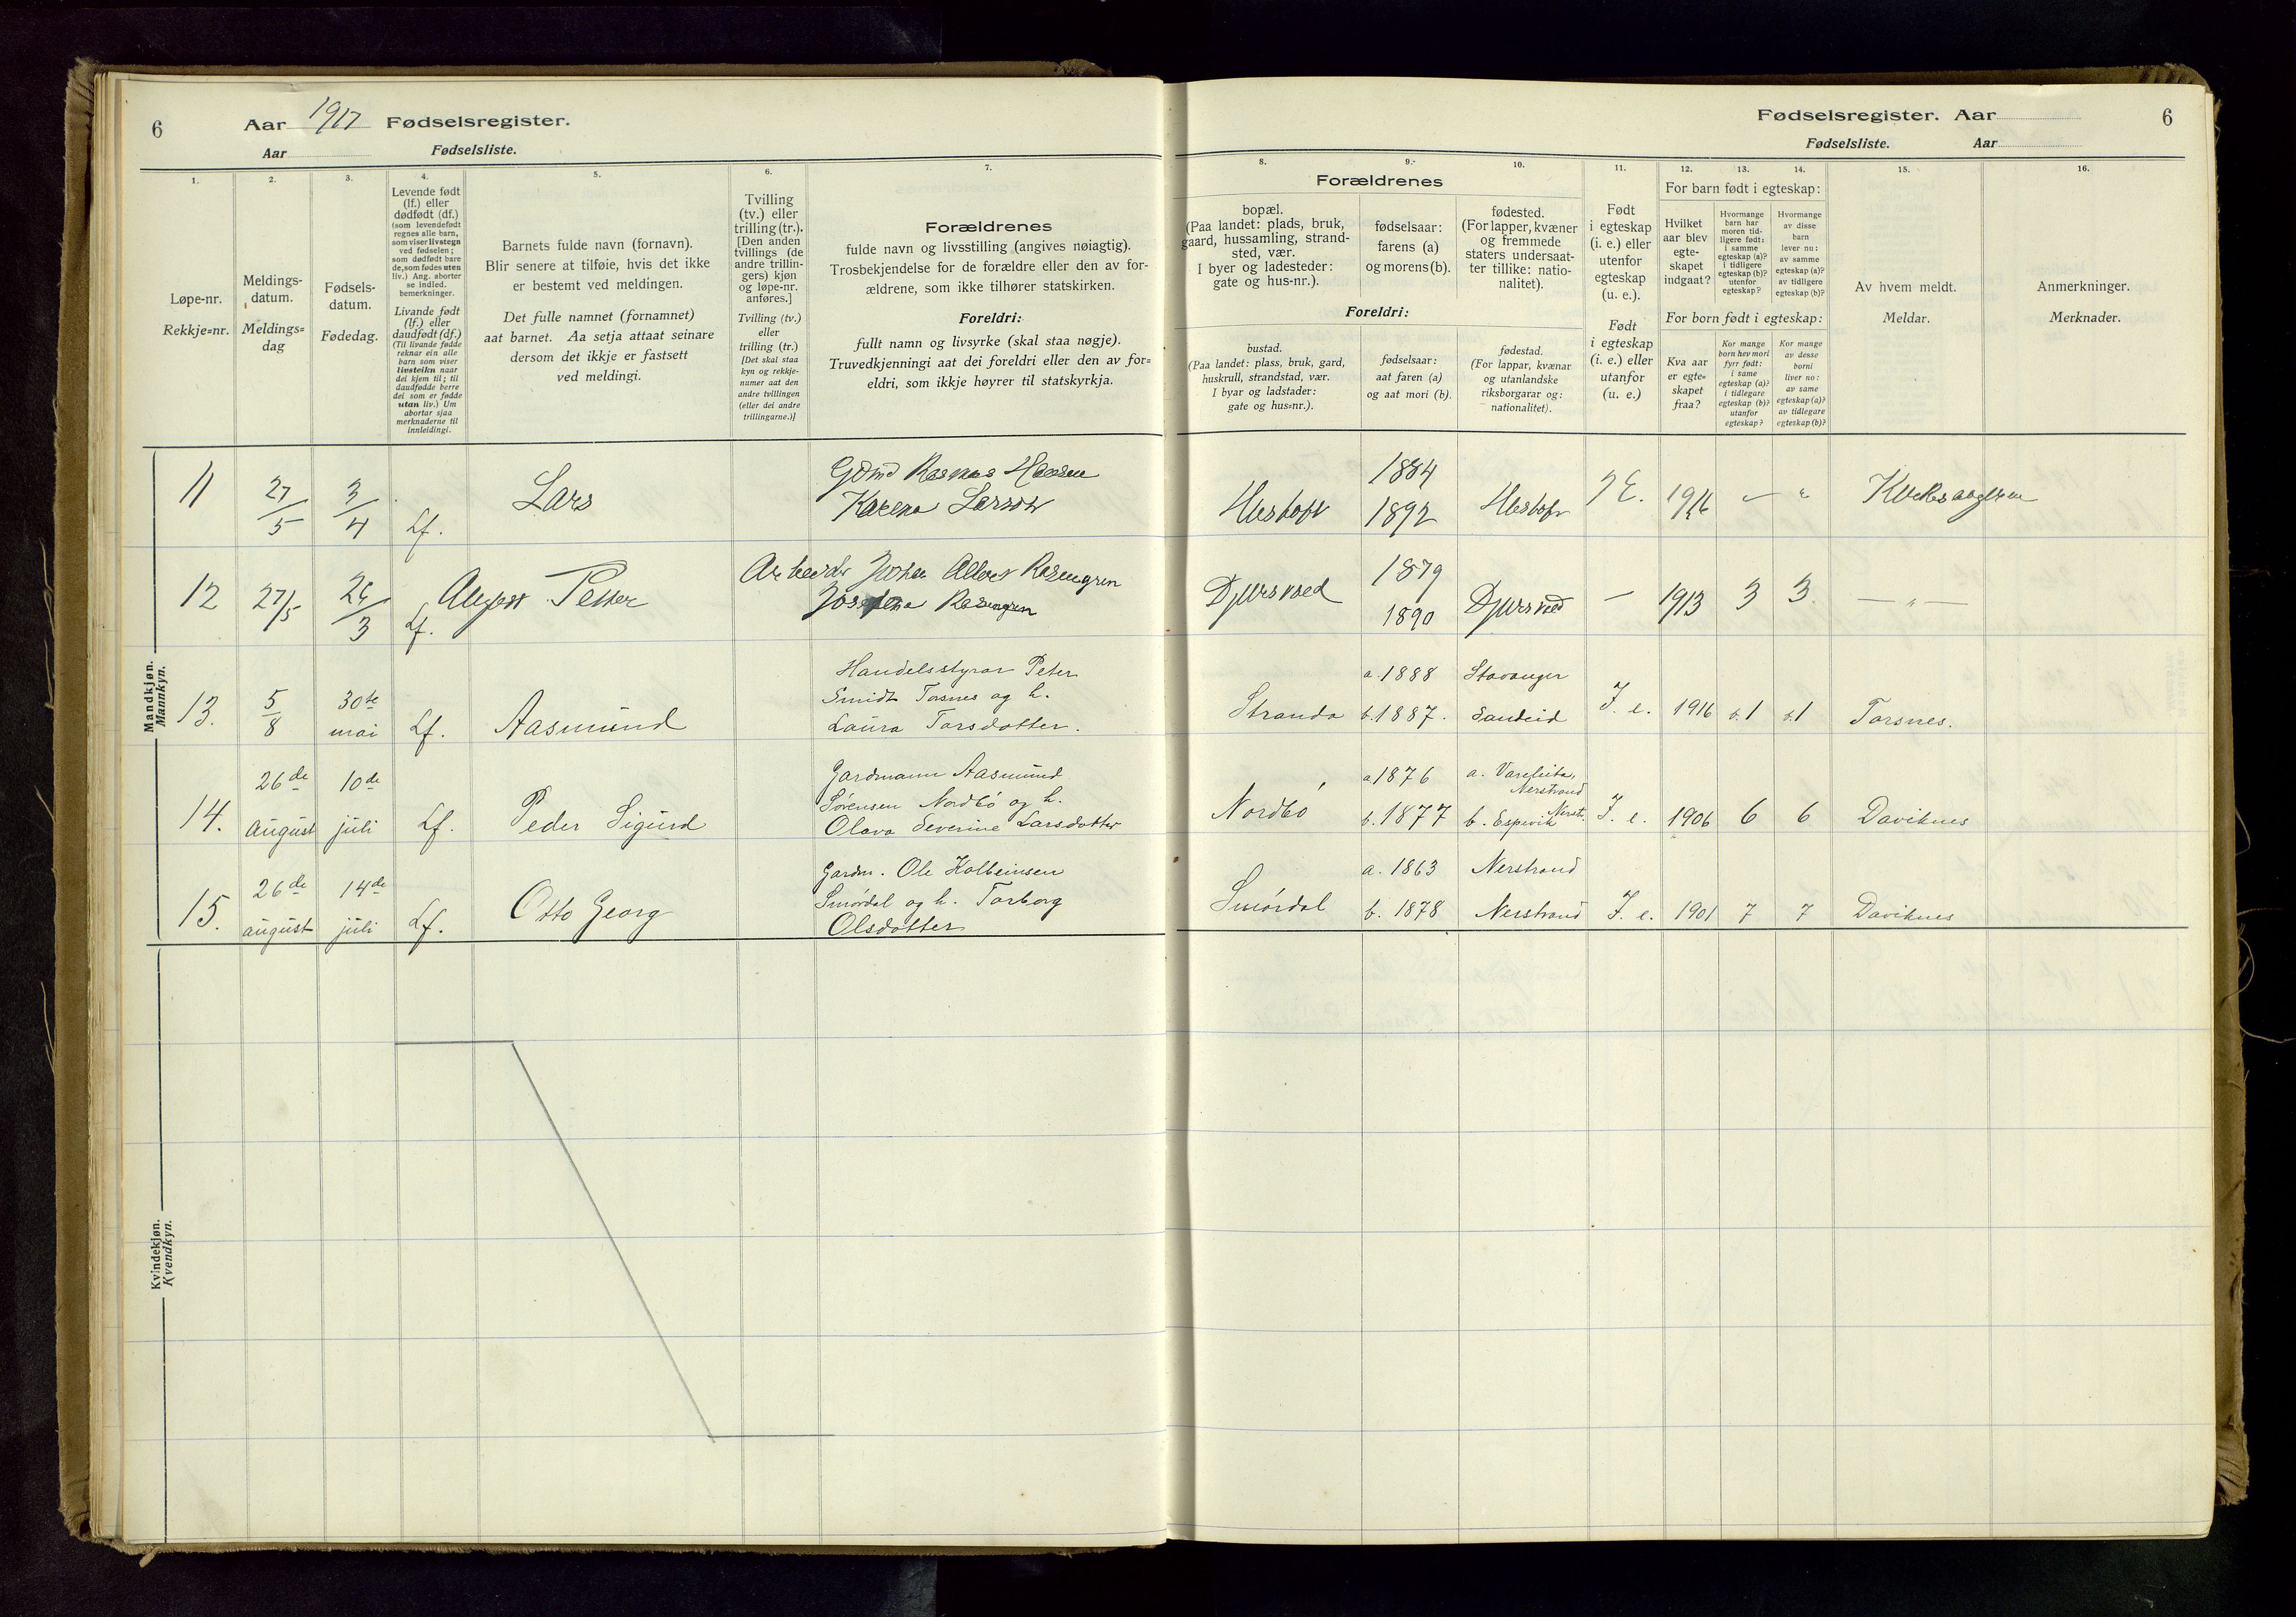 6
Aar 1917 Fødselsregister.
Aar Fødselsliste.
1.
Løpe-nr.
Rekkje=nr.
2.
Meldings-
datum.
Meldings=
dag
3.
Fødsels-
datum.
Fødedag.
4.
Levende født
(lf.) eller
dødfødt (df.)
(som levendefødt
regnes alle barn,
som viser livstegn
ved fødselen;
som dødfødt bare
de, som fødes uten
liv.) Ang. aborter
se indled.
bemerkninger.
Livande født
(lf.) eller
daudfødt (df.)
(Til livande fødde
reknar ein alle
barn som viser
livsteikn naar
dei kjem til; til
daudfødde berre
dei som er fødde
utan liv.) Um
abortar sjaa
merknaderne til
innleidingi.
5.
Barnets fulde navn (fornavn).
Blir senere at tilføie, hvis det ikke
er bestemt ved meldingen.
Det fulle namnet (fornamnet)
aat barnet. Aa setja attaat seinare
dersom det ikkje er fastsett
ved meldingi.
6.
Tvilling
(tv.) eller
trilling (tr.).
[Den anden
tvillings (de
andre trillin-
gers) kjøn
og løpe-nr.
anføres.]
Tvilling (tv.)
eller
trilling (tr.)
[Det skal staa
kyn og rekkje-
numer aat den
andre tvillingen
(eller dei andre
trillingarne.)]
7.
Forældrenes
fulde navn og livsstilling (angives nøiagtig).
Trosbekjendelse for de forældre eller den av for-
ældrene, som ikke tilhører statskirken.
Foreldri:
fullt namn og livsyrke (skal staa nøgje).
Truvedkjenningi aat dei foreldri eller den av for=
eldri, som ikkje høyrer til statskyrkja.
Mandkjøn.
Mannkyn.
11 27/5 3/4 Lf. Lars
Karena Larsson
12 27/5 26/3 Lf. August Petter
Arbeider Johan Albert Rosengren
Josefine Rosengren
13. 5/8 30te mai Lf. Aasmund
Handelsstyrar Peter
Smidt Torsnes og h.
Laura Torsdotter.
14. 26de august 10de juli Lf. Peder Sigurd
Gardmann Aasmund
Sørensen Nordbó og h.
Olava Severine Larsdotter
15. 26de august 14de juli Lf. Otto Georg
Gardm. Ole Kolbeinsen
Smórdal og h. Torborg
Olsdotter
Kvindekjøn.
Kvendkyn.
Fødselsregister. Aar
6
Fødselsliste. Aar
8.
Forældrenes
bopæl.
(Paa landet: plads, bruk,
gaard, hussamling, strand-
sted, vær.
I byer og ladesteder:
gate og hus-nr.).
9.
fødselsaar:
farens (a)
og morens (b).
10.
fødested.
(For lapper, kvæner
og fremmede
staters undersaat-
ter tillike: natio-
nalitet).
Foreldri:
bustad.
(Paa landet: plass, bruk, gard,
huskrull, strandstad, vær.
I byar og ladstader:
gate og hus=nr.).
fødselsaar:
aat faren (a)
og aat mori (b).
fødestad.
(For lappar, kvænar
og utanlandske
riksborgarar og:
nationalitet).
11.
Født
i egteskap
(i. e.) eller
utenfor
egteskap
(u. e.).
Født
i egteskap
(i. e.) eller
utanfor
(u. e.)
12. 13. 14.
For barn født i egteskap:
Hvilket
aar blev
egte-
skapet
indgaat?
Hvormange
barn har
moren tid-
ligere født:
i samme
egteskap (a)?
i tidligere
egteskap (b)?
utenfor
egteskap?
Hvormange
av disse
barn
lever nu:
av samme
egteskap (a)?
av tidligere
egteskap (b)?
For born født i egteskap:
Kva aar
er egte=
skapet
fraa?
Kor mange
born hev mori
fyrr født:
i same
egteskap (a)?
i tidlegare
egteskap (b)?
utanfor
egteskap?
Kor mange
av desse
borni
liver no:
av same
egteskap (a)?
av tidlegare
egteskap (b)?
15.
Av hvem meldt.
Meldar.
16.
Anmerkninger.
Merknader.
1884
1892
1916
Djursvoed 1879
1890 Djursvoed — 1913 3 3 — „ —
Stranda a. 1888 Stavanger
b. 1887. Sandeid I. e. 1916 b. 1 b. 1 Torsnes.
Nordbó a 1876 a.
Nerstrand
b. 1877 b. Espevik Nerstr. I. e. 1906 6 6 Daviknes
Smórdal a. 1863 Nerstrand
b. 1878 Nerstrand I. e. 1901 7 7 Daviknes